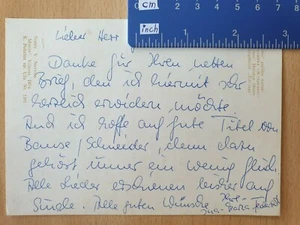 cm
inch
1
2
3
Lieber Herr
Danke für Ihren netten
Brief, den ich hiermit sehr
herzlich erwidern möchte
Und ich hoffe auf gute Titel von
Bause/Schneider, denn dazu
gehört immer ein wenig Glück
Alle Lieder erschienen leider auf
Single. Alle guten Wünsche Ihre